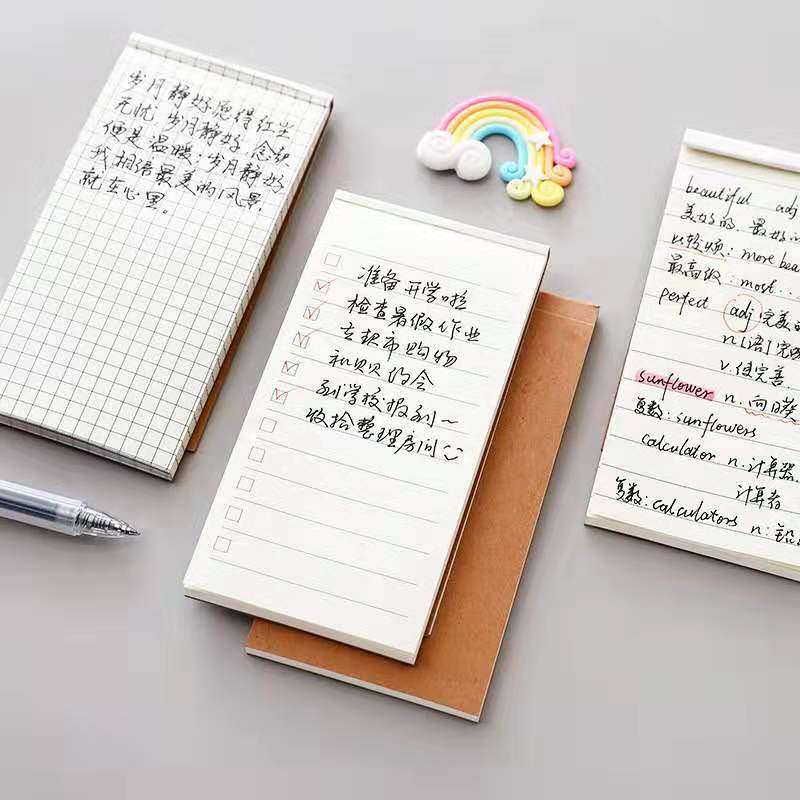 岁月静好愿得红尘
无忧 岁月静好,念起
便是温暖;岁月静好
我相信最美的风景,
就在心里。
准备开学啦
检查暑假作业
去超市购物
和贝贝约会
到学校报到~
收拾整理房间
beautiful adj
美好的,最好
比较级: more beau
最高级: most...
perfect adj 完美的
n [语] 完
v. 使完善
sunflower n. 向日葵
复数: sunflowers
calculator n. 计算器
计算者
复数: calculators n: